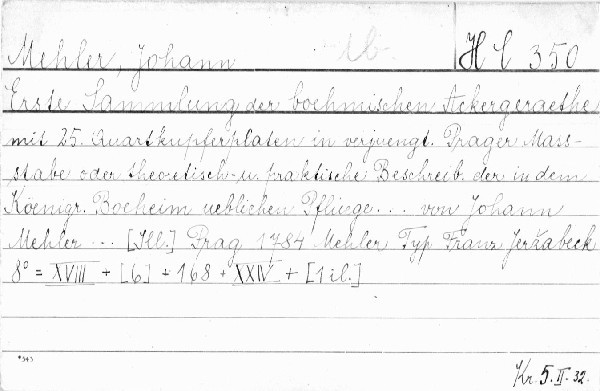 Mehler, Johann 1b H C 350
Erste Sammlung der boehmischen Ackergeraethe
mit 25. Quartkupferplaten in verjuengt. Prager Mass-
stabe oder theoretisch-u. praktische Beschreib. der in dem
Koenigr. Boeheim ueblichen Pfluege... von Johann
Mehler ... [Ill.] Prag 1784 Mehler Typ Franz Jeržabeck
8° = XVIII + [6] + 168 + XXIV + [1 il.]
*343
Kr. 5. II. 32.